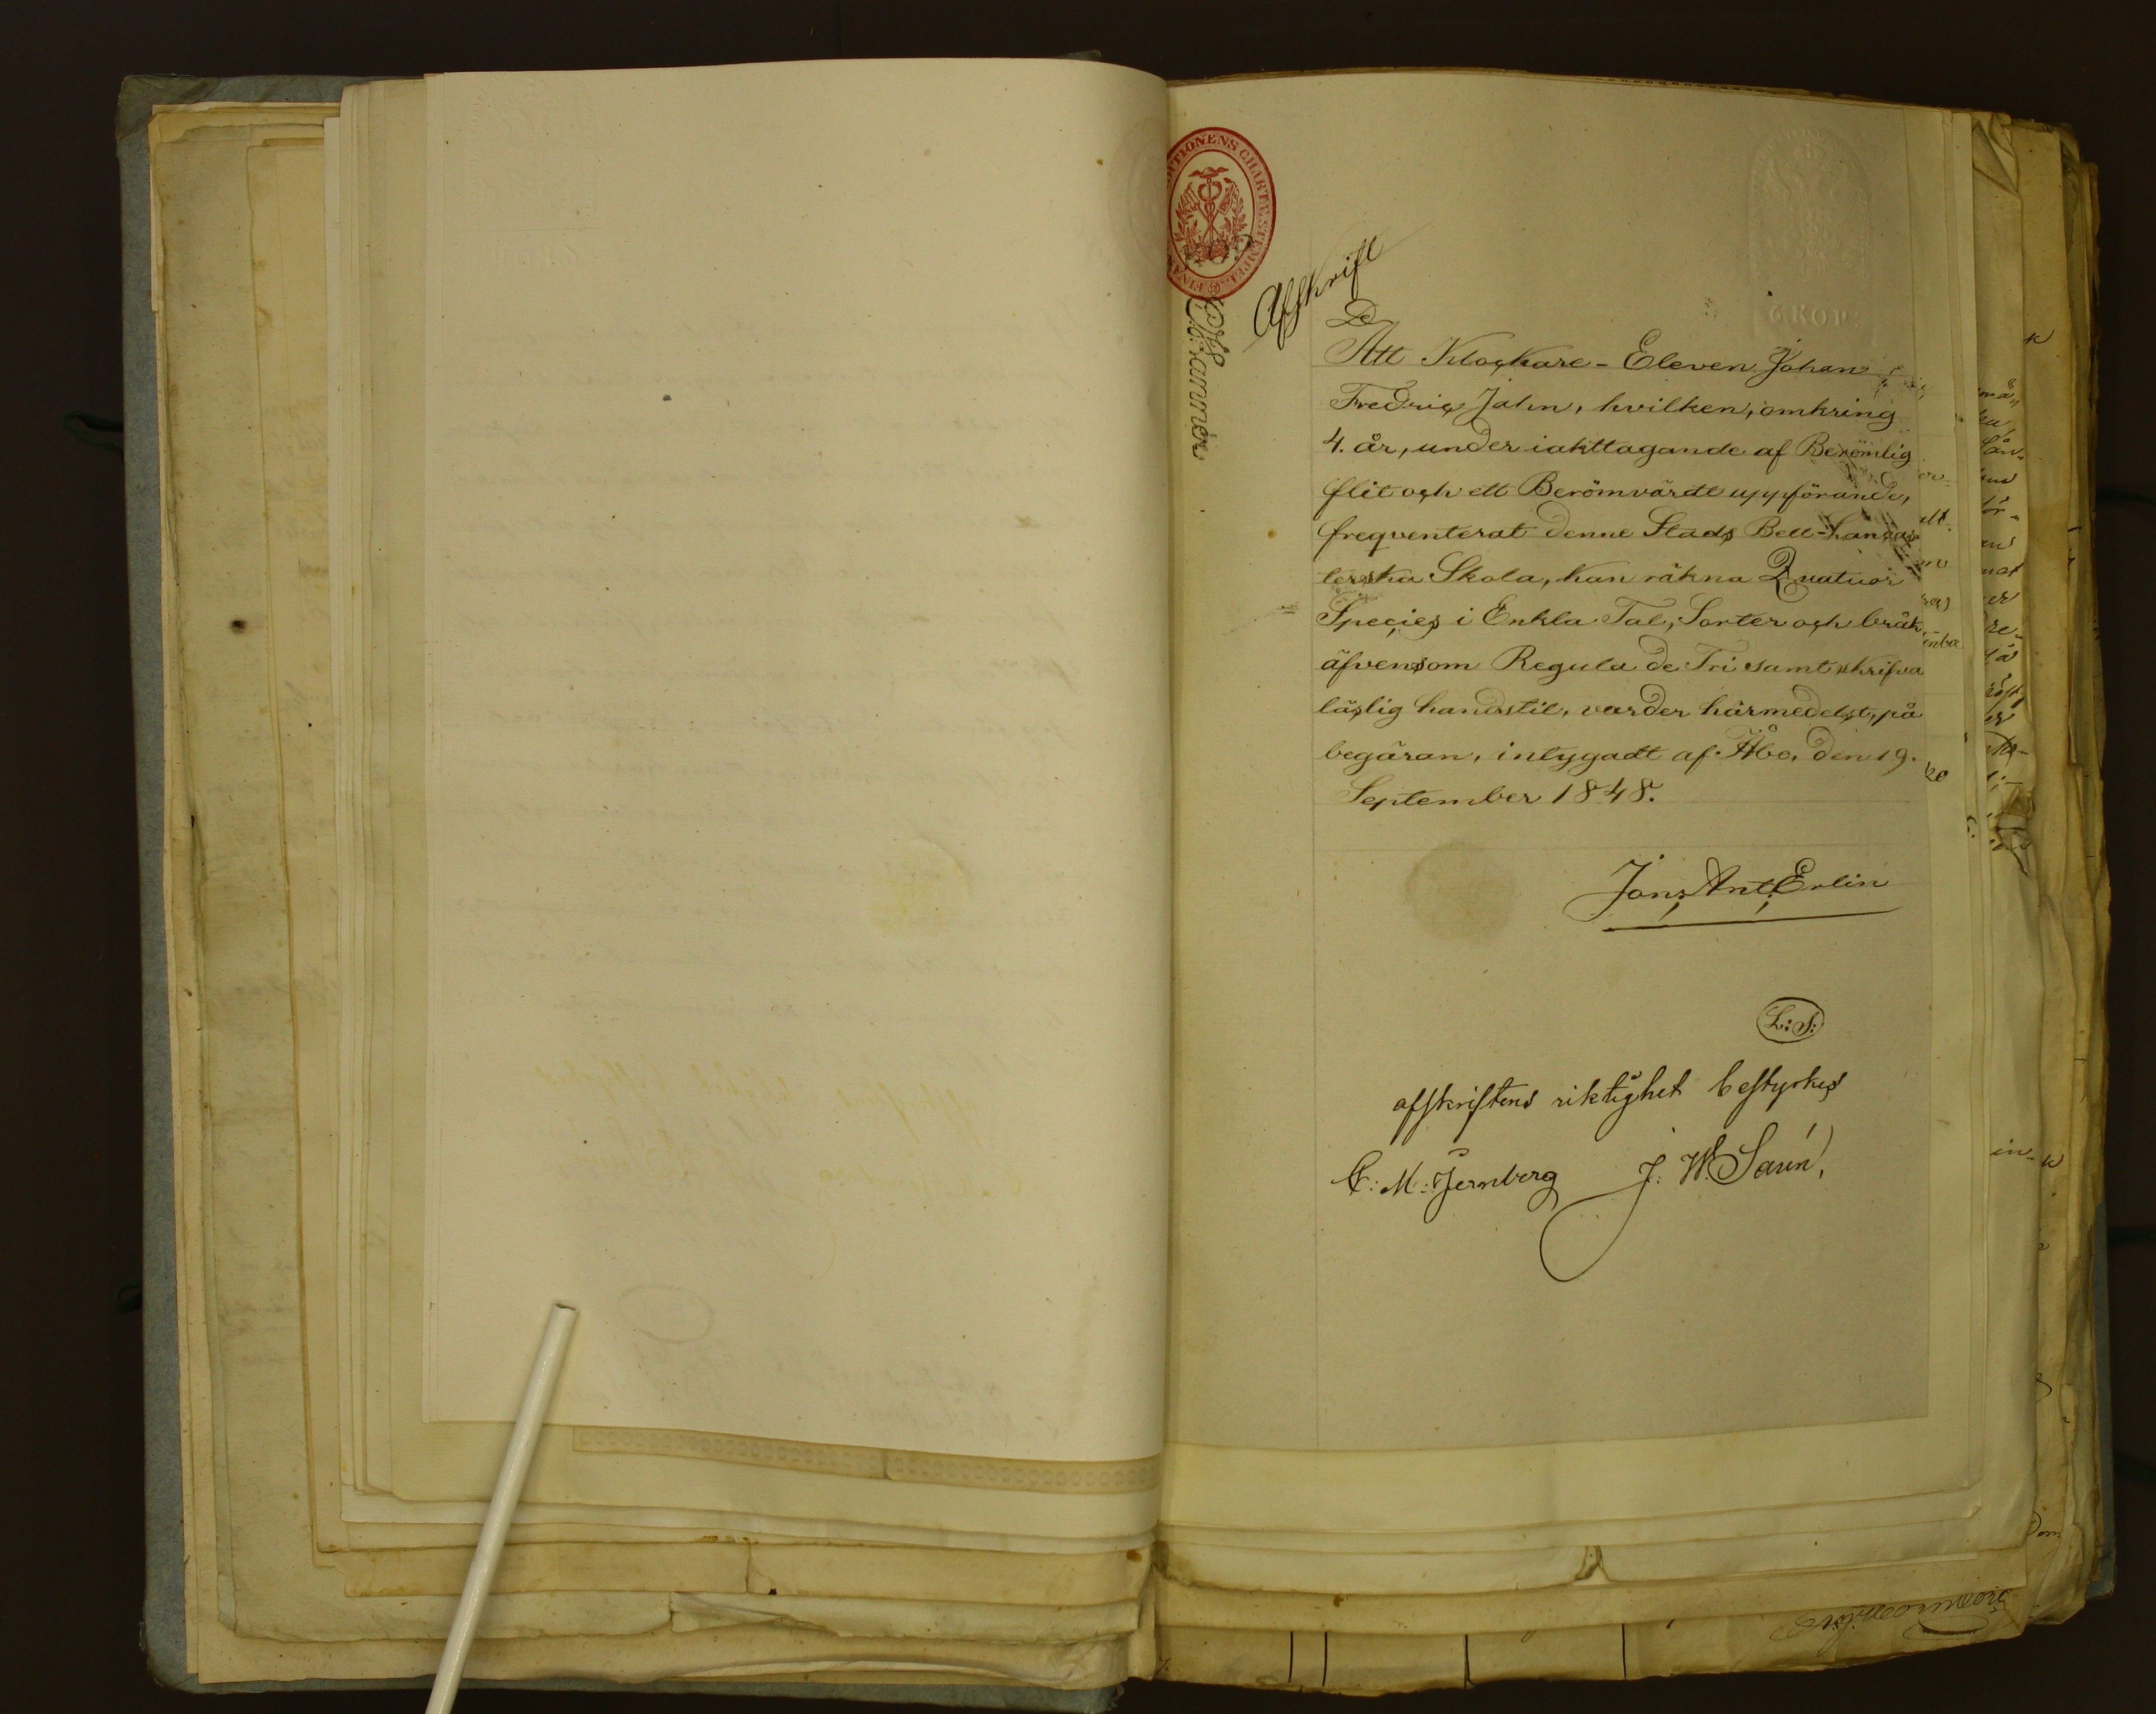 FINANS EXPEDITIONENS CHARTÆ STEMPEL
C. Hammer
6 KOP:
Afskrift
Att Klockare-Eleven Johan
Fredric Jahn, hvilken, omkring
4. år, under iakttagande af Berömlig
flit och ett Berömvärdt uppförande,
freqventerat denne Stads Bell-Lancas
terska Skola, kan räkna Quatuor
Species i Enkla Tal, Sorter och bråk,
äfvensom Regula de Tri samt skrifva
läslig handstil, varder härmedelst, på
begäran, intygadt af Åbo, den 19.
September 1848.
Jons Ant. Erlin
L: S:
afskriftens riktighet bestyrkes
C: M: Jernberg J: W. Saxén,